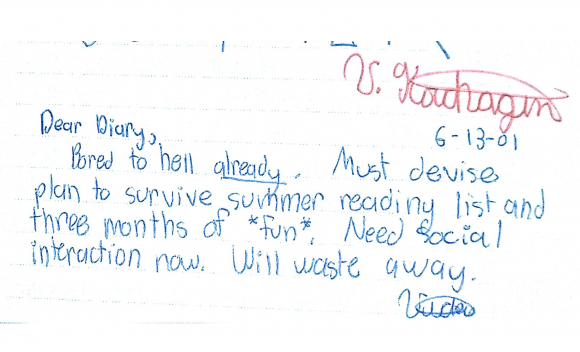 V. Kochagin
6-13-01
Dear Diary,
Bored to hell already. Must devise
plan to survive summer reading list and
three months of *fun*. Need social
interaction now. Will waste away.